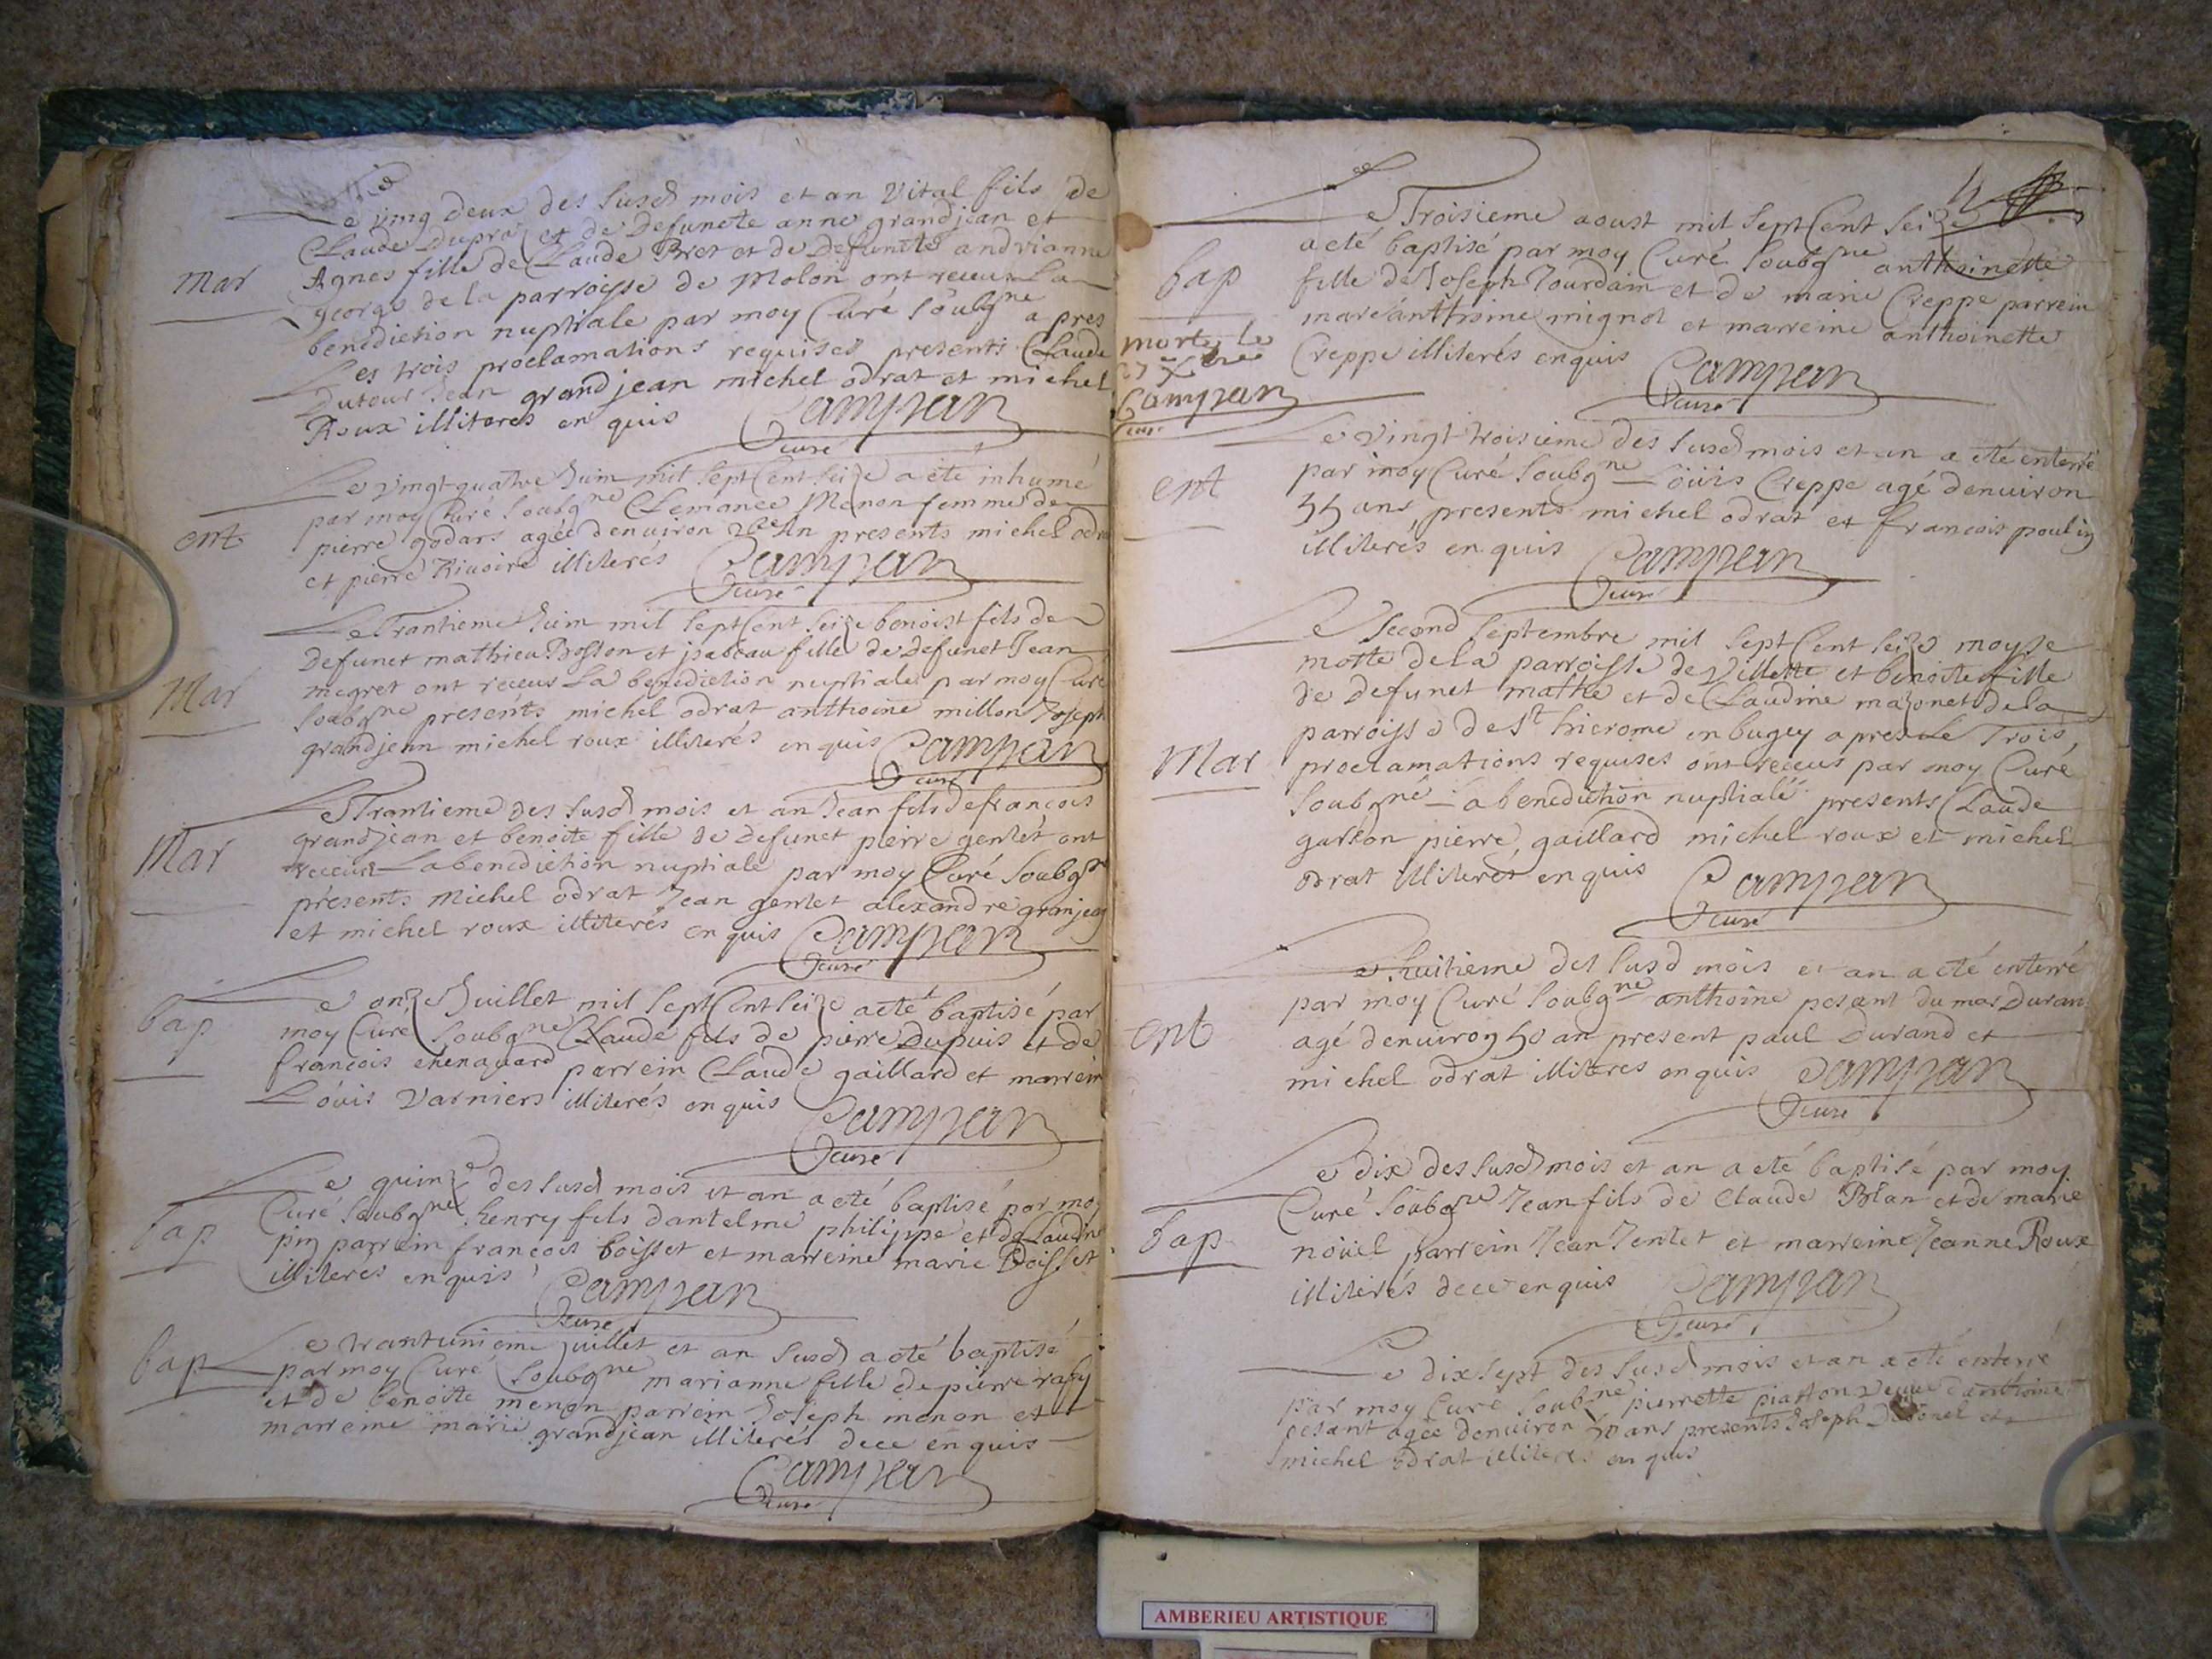 Le vingt deux des susd mois et an Vital fils de
Claude Dupra et de Defuncte anne grandjean et
Mar
Agnes fille de Claude Bret et de Defuncte andrianne
george de la parroisse de Molon ont receus La
benediction nuptiale par moy Curé soubgne apres
Les trois proclamations requises presents Claude
Dutour Jean grandjean michel odrat et michel
Roux illiteres enquis Campan
curé
Le vingt quatre Juin mil sept Cent seize a eté inhumé
par moy Curé soubgne Clemance Menon femme de
ent
pierre godars agée denuiron an presents michel odrat
et pierre Riuoire illiterés Campan
curé
Le Trantieme Juin mil sept Cent seize benoist fils de
Defunct mathieu Bosson et jsabeau fille de defunct Jean
Mar
megret ont receus La benediction nuptiale par moy Curé
soubgne presents michel odrat anthoine millon Joseph
grandjean michel roux illiterés enquis Campan
curé
Le Trantieme des susd mois et an Jean fils de francois
grandjean et benoite fille de defunct pierre genlet ont
Mar
receus La benediction nuptiale par moy Curé soubgne
presents Michel odrat Jean genlet alexandre granjean
et michel roux illiterés enquis Campan
curé
Le onze Juillet mil sept Cent seize a eté baptisé par
bap
moy Curé soubgne Claude fils de pierre Dupuis et de
francois chenauard parrein Claude gaillard et marrein
Löuis Varniers illiterés enquis
Campan
curé
Le quinze des susd mois et an a eté baptisé par moy
Curé soubgne henry fils dantelme philippe et de Claudine
bap
pin parrein francois boisset et marreine marie Boisset
illiteres enquis Campan
curé
Le trantunieme juillet et an susd a eté baptisé
bap
par moy Curé soubgne marianne fille de pierre rafy
et de benoite menon parrein Joseph menon et
marreine marie grandjean illiterés dece enquis
Campan
curé
Le Troisieme aoust mil sept Cent seize
a eté baptisé par moy Curé soubgne anthoinette
bap
fille de Joseph Jourdain et de marie Creppe parrein
marcanthoine mignot et marreine anthoinette
morte le
Creppe illiterés enquis Campan
curé
Campan
curé
Le Vingt troisieme des susd mois et an a eté enterré
ent
par moy Curé soubgne Löüis Creppe agé denuiron
55 ans presents michel odrat et francois poulin
illiterés enquis Campan
curé
Le second septembre mil sept Cent seize moyse
motte de la parroisse de Villette et benoite fille
de defunct mathe et de Claudine mazonet de la
Mar
parroisse de St hierome en bugey apres Le Trois
proclamations requises ont receus par moy Curé
soubgné La benediction nuptiale presents Claude
garson pierre gaillard michel roux et michel
odrat illiteret enquis Campan
curé
Le huitieme des susd mois et an a eté enterré
par moy Curé soubgne anthoine pesant du mas Duran
ent
agé denuiron 50 an present paul Durand et
michel odrat illiteres enquis Campan
curé
Le dix des susd mois et an a eté baptisé par moy
Curé soubgne Jean fils de Claude Blan et de marie
bap
noüel parrein Jean Jenlet et marreine Jeanne Roux
illiterés dece enquis Campan
curé
Le dix sept des susd mois et an a eté enterré
par moy Curé soubgne pierrette piatton veuve danthoine
pesant agée denuiron 50 ans presents Joseph et
michel odrat illiteres enquis
AMBERIEU ARTISTIQUE